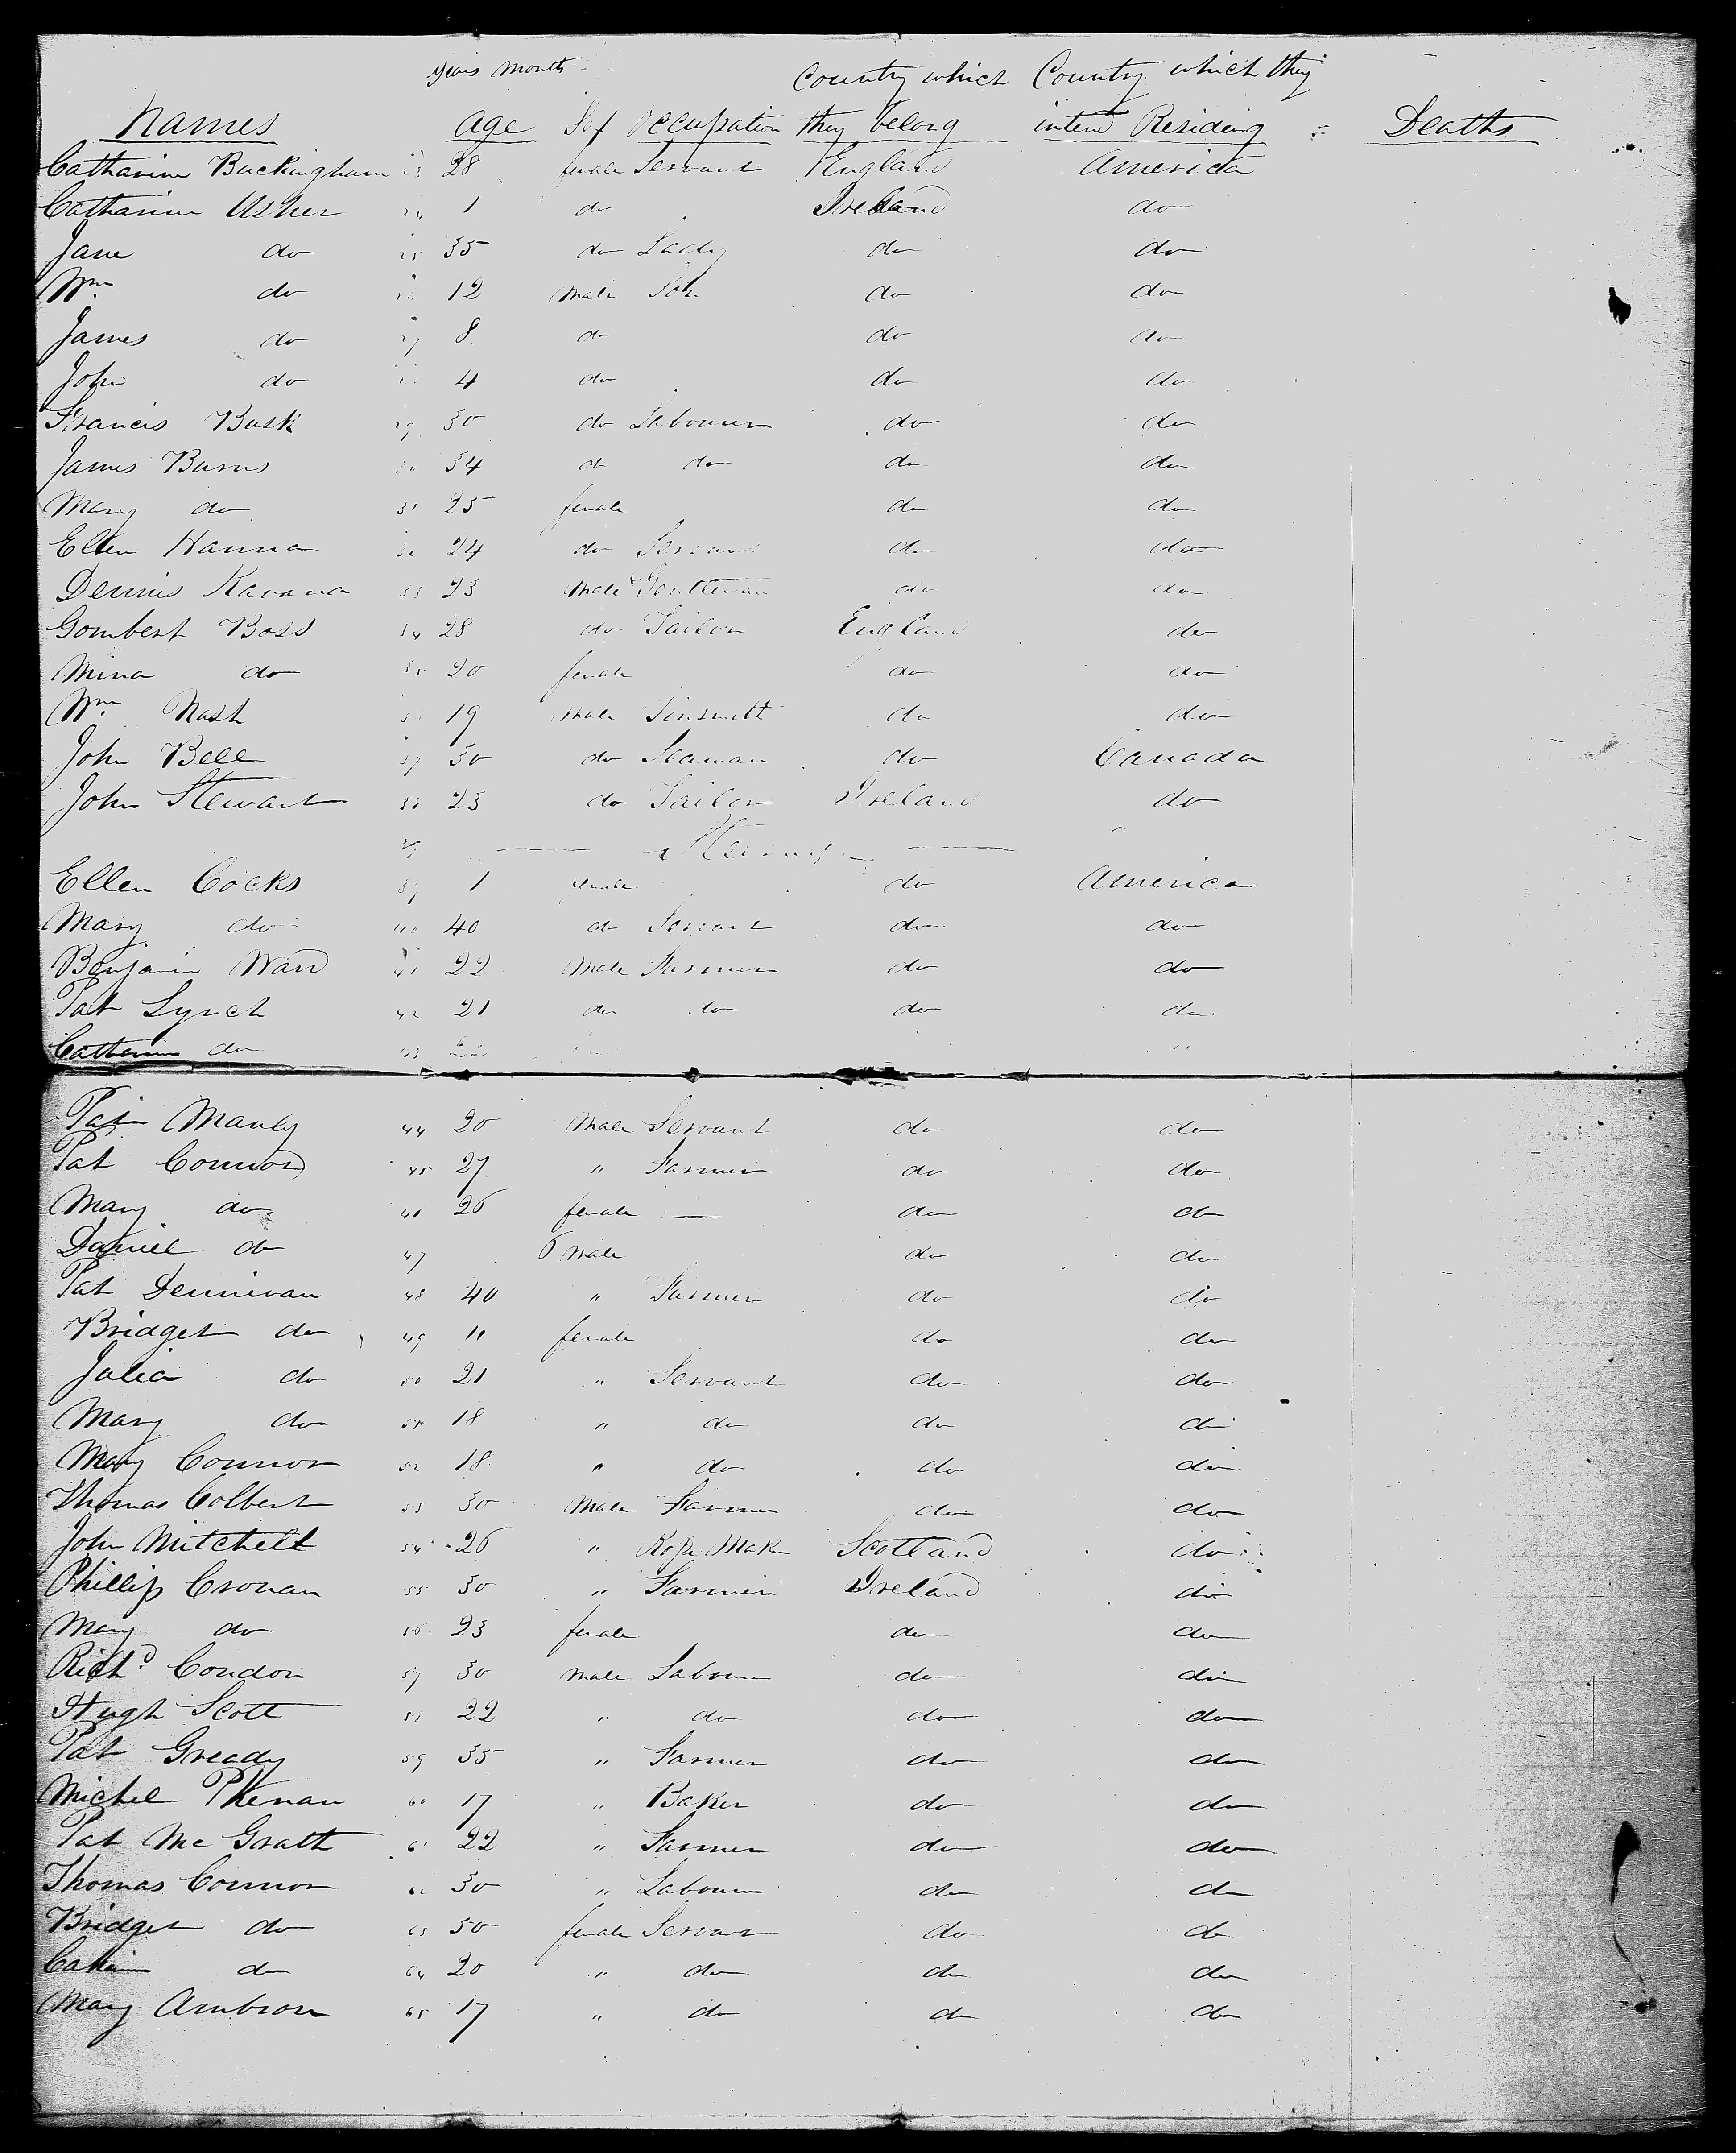 Years Month
Country which Country which they
Names Age Sex Occupation they belong intend Residing Deaths
Catharine Buckingham 23 28 female Servant England America
Catharine Usher 24 1 do Ireland do
Jane do 25 35 do Lady do do
Wm do 26 12 Male Son do do
James do 27 8 do do do
John do 4 do do do
Francis Busk 29 30 do Labourer do do
James Burns 30 34 do do do do
Mary do 31 25 female do do
Ellen Hanna 32 24 do Servant do do
Dennis Kavana 33 23 Male Gentleman do do
Gombert Boss 34 28 do Tailor England do
Mina do 35 20 female do do
Wm Nash 19 Male Tinsmith do do
John Bell 37 30 do Seaman do Canada
John Stewart 38 23 do Tailor Ireland do
39 Steerage
Ellen Cocks 39 1 female do America
Mary do 40 40 do Servant do do
Benjamin Ward 41 22 Male Farmer do do
Pat Lynch 42 21 do do do do
Catharine do 43 22
Pat Manly 44 20 Male Servant do do
Pat Connor 45 27 " Farmer do do
Mary do 46 26 female — do do
Daniel do 47 6 Male do do
Pat Dennivan 48 40 " Farmer do do
Bridget do 49 11 female do do
Julia do 50 21 " Servant do do
Mary do 51 18 " do do do
Mary Connor 52 18 " do do do
Thomas Colbert 53 30 Male Farmer do do
John Mitchell 54 26 " Rope Maker Scotland do
Phillip Cronan 55 30 " Farmer Ireland do
Mary do 56 23 female do do
Richd Condon 57 30 Male Labourer do do
Hugh Scott 58 22 " do do do
Pat Gready 59 35 " Farmer do do
Michel Phenan 60 17 " Baker do do
Pat Mc Grath 61 22 " Farmer do do
Thomas Connor 62 30 " Labourer do do
Bridget do 63 50 female Servant do do
do 64 20 " do do do
Mary Ambrose 65 17 " do do do